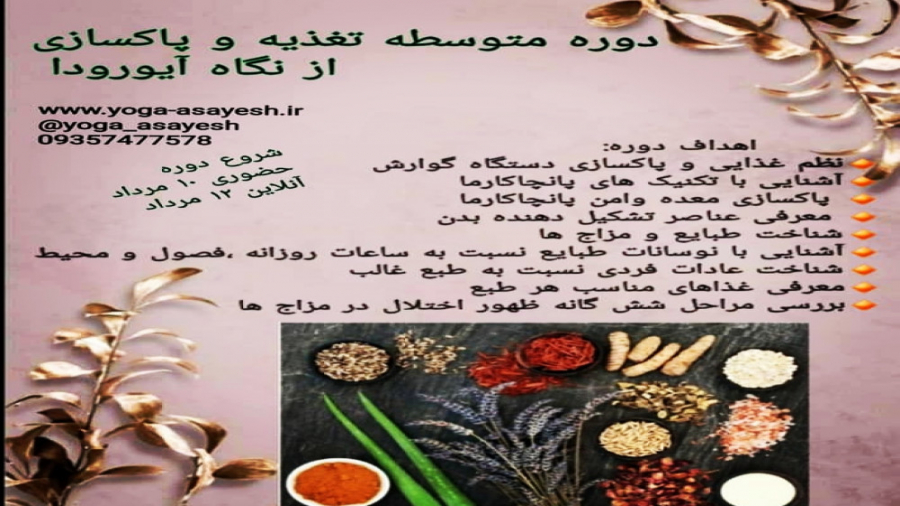 دوره متوسطه تغذیه و پاکسازی
از نگاه آیورودا
www.yoga-asayesh.ir
@yoga_asayesh
09357477578
شروع دوره
حضوری ۱۰ مرداد
آنلاین ۱۲ مرداد
اهداف دوره:
نظم غذایی و پاکسازی دستگاه گوارش
آشنایی با تکنیک های پانچاکارما
پاکسازی معده وامن پانچاکارما
معرفی عناصر تشکیل دهنده بدن
شناخت طبایع و مزاج ها
آشنایی با نوسانات طبایع نسبت به ساعات روزانه ،فصول و محیط
شناخت عادات فردی نسبت به طبع غالب
معرفی غذاهای مناسب هر طبع
بررسی مراحل شش گانه ظهور اختلال در مزاج ها